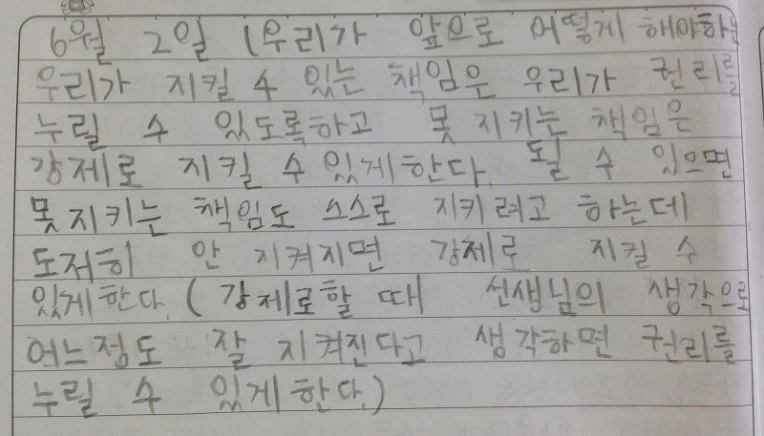 6월 2일 (우리가 앞으로 어떻게 해야하는
우리가 지킬 수 있는 책임은 우리가 권리를
누릴 수 있도록하고 못 지키는 책임은
강제로 지킬 수 있게한다. 될 수 있으면
못지키는 책임도 스스로 지키려고 하는데
도저히 안 지켜지면 강제로 지킬 수
있게한다. (강제로할 때 선생님의 생각으로
어느정도 잘 지켜진다고 생각하면 권리를
누릴 수 있게한다.)